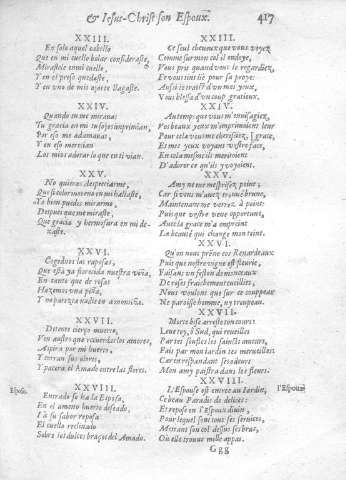 & Iesus-Christ son Espoux. 417
XXIII.
En solo aquel cabello
Que en mi cuello bolar consideraste,
Mirastele en mi cuello,
Y en el preso quedaste,
Y en uno de mis ojos te llagaste.
XXIV.
Quando tu me mirauas
Tu gracia en mi tus ojos imprimian,
Por esso me adamauas,
Y en esso merecian
Los mios adorar lo que en ti vian.
XXV.
No quieras despreciarme,
Que si color moreno en mi hallaste,
Ya bien puedes mirarme,
Despues que me miraste,
Que gracia y hermosura en mi dexaste.
XXVI.
Cogednos las raposas,
Que està ya florecida nuestra viña,
En tanto que de rosas
Hazemos una piña,
Y no parezca nadie en la montiña.
XXVII.
Detente cierço muerto,
Ven austro que recuerdas los amores,
Aspira por mi huerto,
Y corran sus olores,
Y pacera el Amado entre las flores.
XXVIII.
Esposo. Entrado se ha la Esposa,
En el ameno huerto deseado,
I à su sabor reposa
El cuello reclinado
Sobre los dulces braços del Amado.
XXIII.
Ce seul cheueux que vous voyez
Comme sur mon col il ondoye,
Vous pris quand vous le regardiez,
Et vous tint lié pour sa proye:
Aussi le traict d'un mes yeux,
Vous blessa d'un coup gratieux.
XXIV.
Au temps que vous m'enuisagiez,
Vos beaux yeux m'imprimoient leur grace,
Pour cela vous me cherissiez,
Et mes yeux voyans vostre face,
En cela mesme ils meritoient
D'adorer ce qu'ils y voyoient.
XXV.
Amy ne me mesprisez point;
Car si vous m'auez treuué brune,
Maintenant venez à point:
Puis que vostre veüe opportune,
Auec la grace m'a empreint
La beauté qui change mon teint.
XXVI.
Qu'on nous prene ces Renardeaux
Puis que nostre vigne est fleurie,
Faisans un feston de monceaux
De roses fraichement cueillies,
Nous voulons que sur ce couppeau
Ne paroisse homme, ny troupeau.
XXVII.
Morte bise arreste ton cours:
Leue toy, ô Sud, qui reueilles
Par tes souffles les saincts amours,
Fais par mon iardin tes merueilles:
Car en respendant ses odeurs
Mon amy paistra dans les fleurs.
XXVIII.
L'Espouse est entree au Iardin, l'Espoux
Ce beau Paradis de delices:
Et repose en l'Espoux diuin,
Pour lequel sont tous ses seruices,
Mettant son col dessus ses bras,
Où elle trouue mille appas.
Ggg